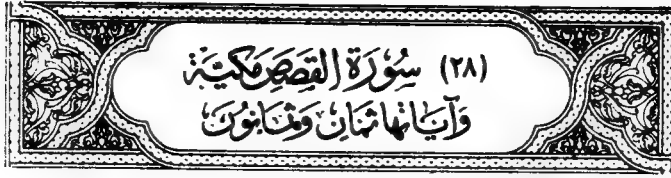 (٢٨) سُوْرَةُ الْقَصَصِ مَكِّيَّةٌ
وَآيَاتُهَا ثَمَانٍ وَثَمَانُونَ